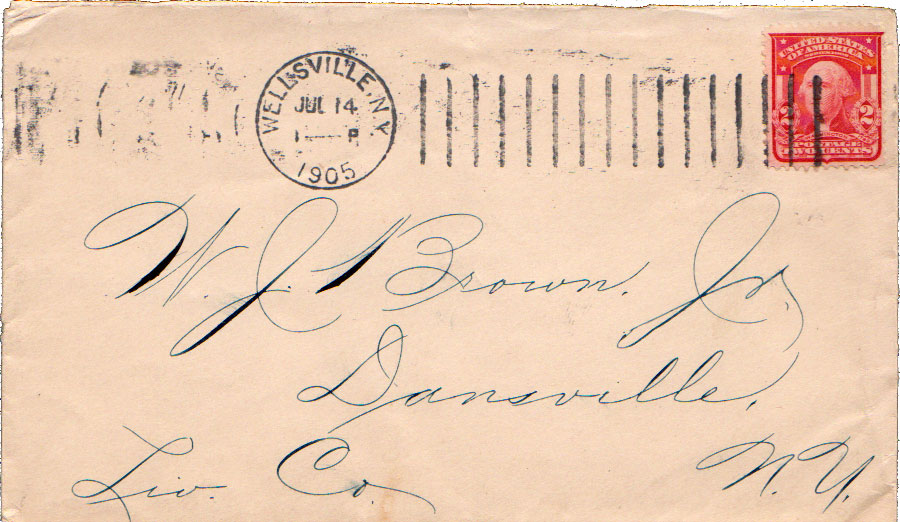 WELLSVILLE, N.Y.
JUL 14
1 — P
1905
UNITED STATES
OF AMERICA
2 2
POSTAGE
TWO CENTS
W. J. Brown. Jr.
Dansville,
Liv. Co. N. Y.